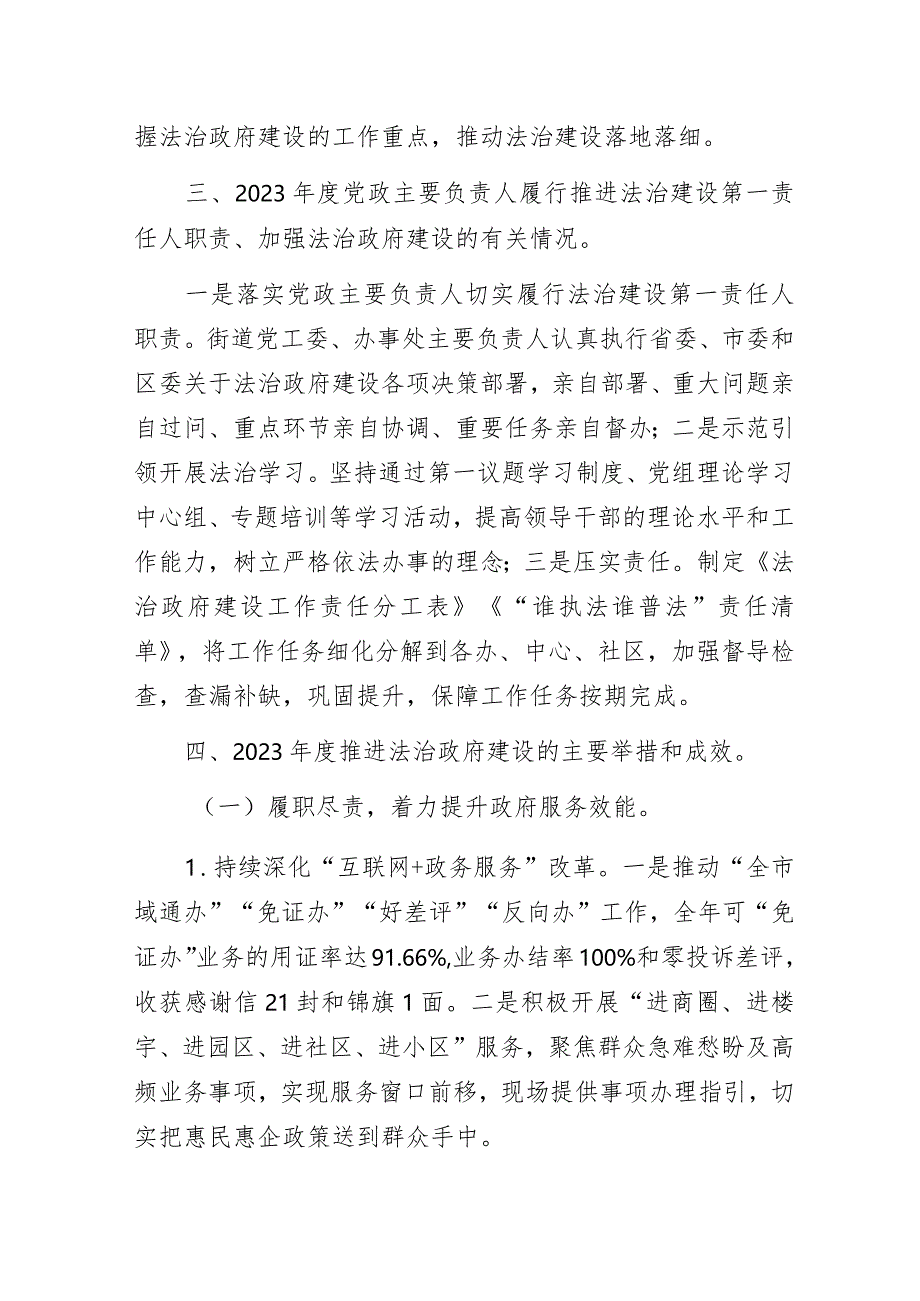 握法治政府建设的工作重点，推动法治建设落地落细。
三、2023 年度党政主要负责人履行推进法治建设第一责
任人职责、加强法治政府建设的有关情况。
一是落实党政主要负责人切实履行法治建设第一责任人
职责。街道党工委、办事处主要负责人认真执行省委、市委和
区委关于法治政府建设各项决策部署，亲自部署、重大问题亲
自过问、重点环节亲自协调、重要任务亲自督办；二是示范引
领开展法治学习。坚持通过第一议题学习制度、党组理论学习
中心组、专题培训等学习活动，提高领导干部的理论水平和工
作能力，树立严格依法办事的理念；三是压实责任。制定《法
治政府建设工作责任分工表》《“谁执法谁普法”责任清
单》，将工作任务细化分解到各办、中心、社区，加强督导检
查，查漏补缺，巩固提升，保障工作任务按期完成。
四、2023 年度推进法治政府建设的主要举措和成效。
（一）履职尽责，着力提升政府服务效能。
1.持续深化“互联网+政务服务”改革。一是推动“全市
域通办”“免证办”“好差评”“反向办”工作，全年可“免
证办”业务的用证率达 91.66%,业务办结率 100%和零投诉差评，
收获感谢信 21 封和锦旗 1 面。二是积极开展“进商圈、进楼
宇、进园区、进社区、进小区”服务，聚焦群众急难愁盼及高
频业务事项，实现服务窗口前移，现场提供事项办理指引，切
实把惠民惠企政策送到群众手中。